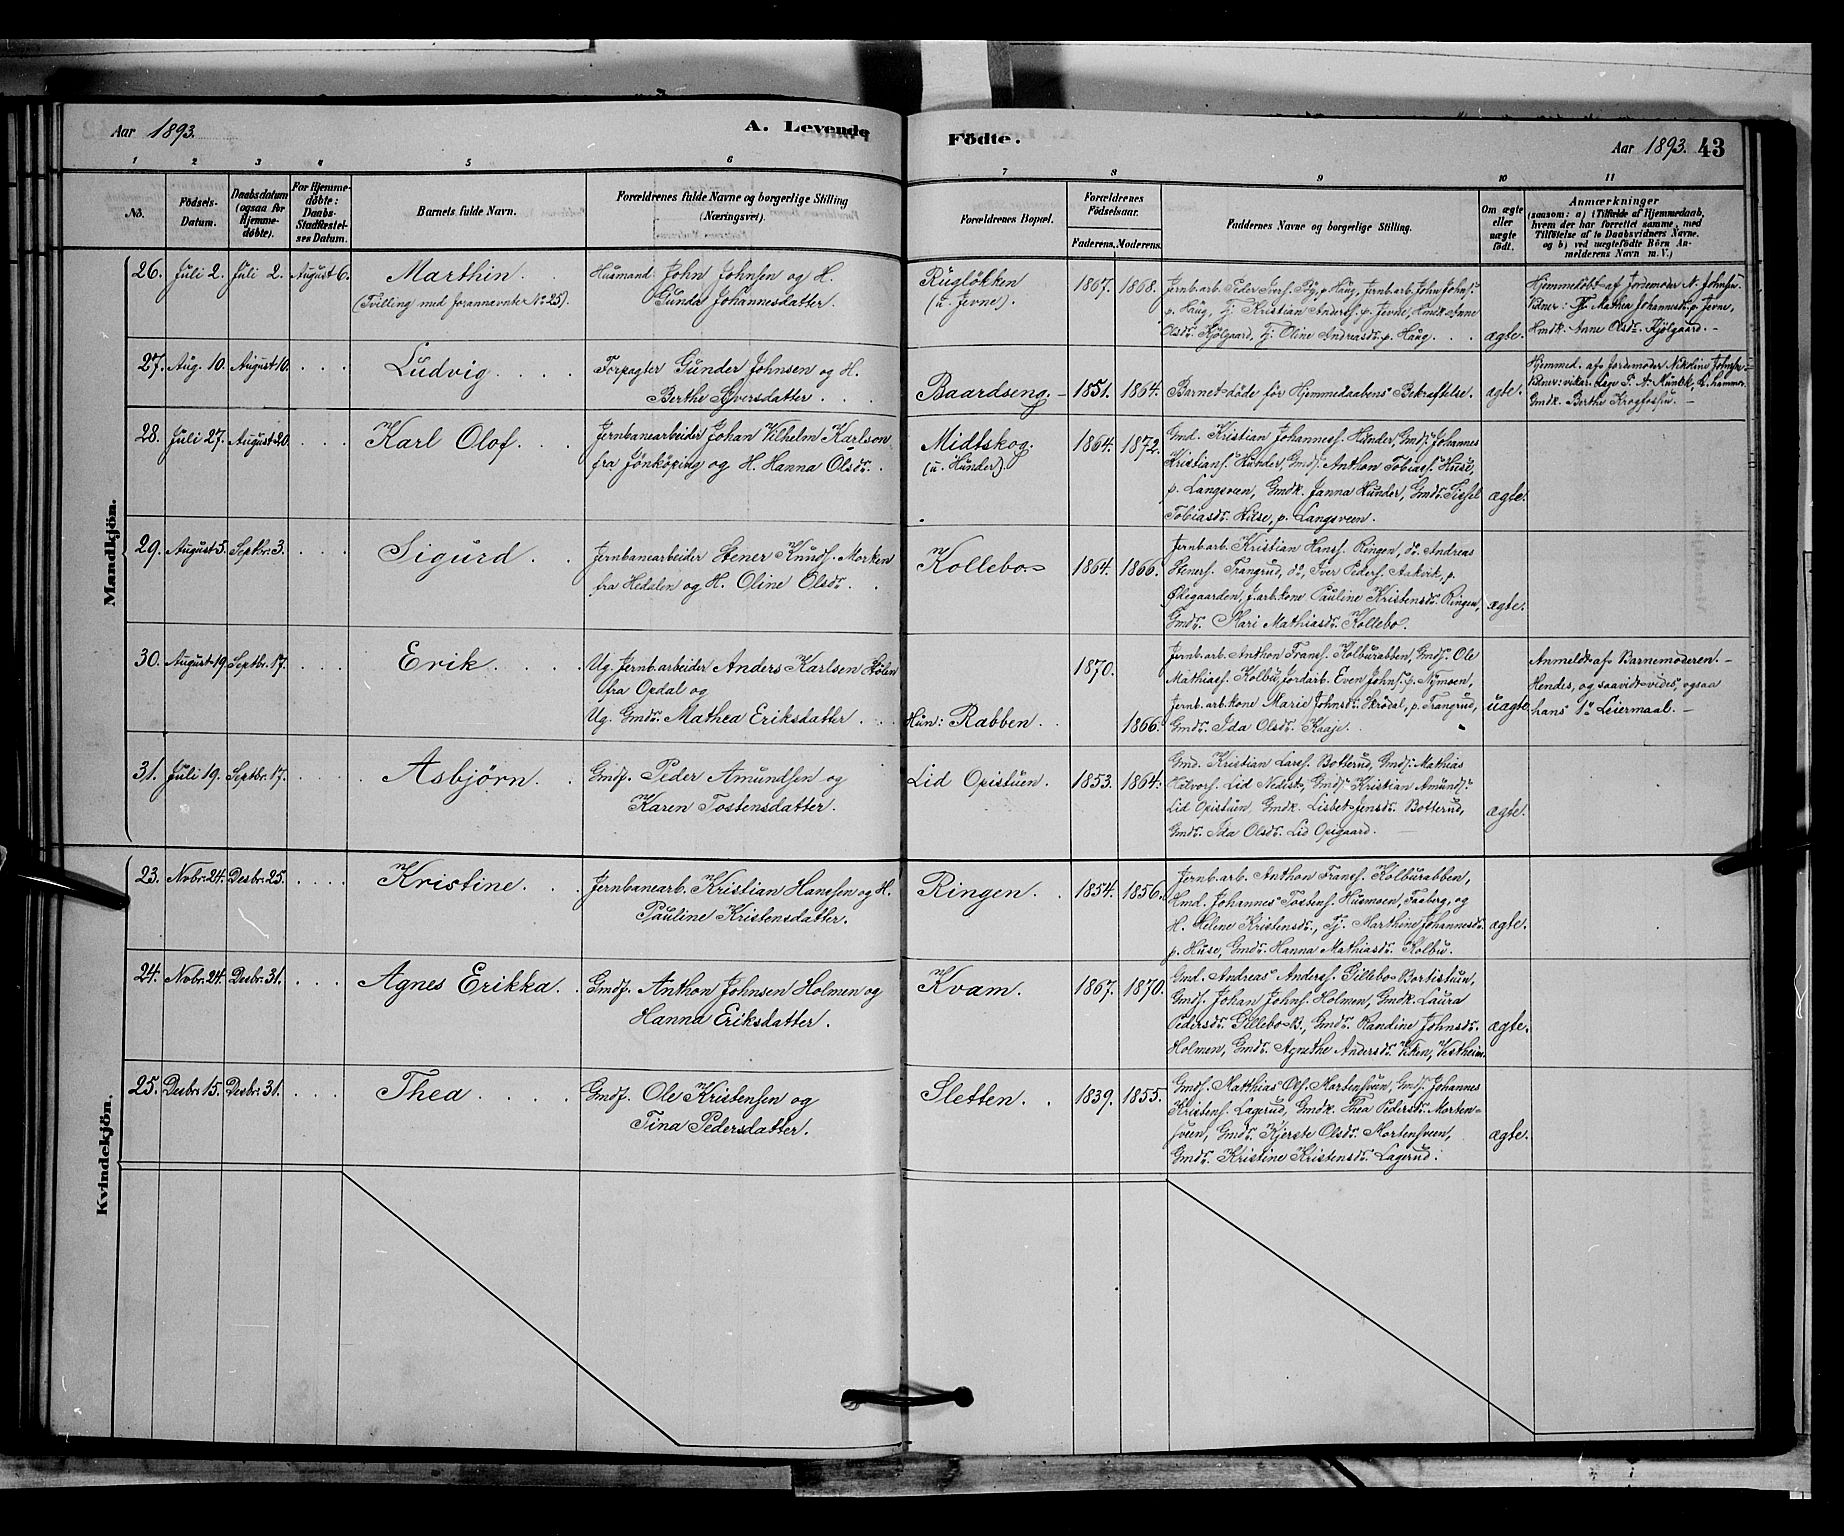 Aar 1893.
A. Levende
Födte.
Aar 1893. 43
1 2 3 4 5 6 7 8 9 10 11
No. Födsels-Datum. Daabsdatum (ogsaa for Hjemmedöbte). For Hjemmedöbte: Daabs-Stadfæstelses Datum. Barnets fulde Navn. Forældrenes fulde Navne og borgerlige Stilling (Næringsvei). Forældrenes Bopæl. Forældrenes Födselsaar. Faderens. Moderens. Faddernes Navne og borgerlige Stilling. Om ægte eller uægte födt. Anmærkninger (saasom: a) i Tilfælde af Hjemmedaab, hvem der har forrettet samme, med Tilföielse af to Daabsvidners Navne, og b) ved uegtefödte Börn Anmelderens Navn m. V.)
Mandkjön.
26. Juli 2. Juli 2. August 6. Marthin.
(Tvilling med forannævnte No 25).
Husmand John Johnsen og H.
Gunda Johannesdatter.
Rugløkken
(u. Jevne).
1867. 1868.
Jernb. arb. Peder Ivers. Bø, p. Haug, Jernb. arb. John Johns.
p. Haug, Tj. Kristian Anders. p. Jevne, Hmdk. Anne
Olsdr. Kjølgaard, Tj. Oline Andreasdr. p. Haug.
ægte.
Hjemmedøbt af Jordemoder N. Johnsen.
Vidner: Tj. Mathea Johannesdr. p. Jevne,
Hmdk. Anne Olsdr. Kjølgaard.
27. Aug. 10. August 10. Ludvig
Forpagter Gunder Johnsen og H.
Berthe Syversdatter.
Baardseng.
1851. 1864.
Barnet døde før Hjemmedaabens Bekræftelse.
ægte.
Hjemmed. af Jordemoder Nikoline Johnsen
Vidner: vikar. Læge T. A. Munck, L.hammer
Gmdk. Berthe Krogfoshu.
28. Juli 27. August 20. Karl Olof.
Jernbanearbeider Johan Vilhelm Karlson
fra Jönköping og H. Hanna Olsdr.
Midtskog.
(u. Hunder).
1864. 1872.
Gmd. Kristian Johanness. Hunder, Gmds. Johannes
Kristians. Hunder, Gmds. Anthon Tobiass. Huse,
p. Langsveen, Gmdk. Janna Hunder, Gmdr. Sissel
Tobiasdr. Huse, p. Langsveen.
ægte.
29. August 5. Septbr. 3. Sigurd.
Jernbanearbeider Stener Knuds. Morken
fra Hedalen og H. Oline Olsdr.
Kollebo.
1864. 1866.
Jernb. arb. Kristian Hans. Ringen, do. Andreas
Steners. Trangrud, do. Iver Peders. Aakvik, p.
Ødegaarden, j.arb. kone Pauline Kristensdr. Ringen,
Gmdr. Mari Mathiasdr. Kollebo.
ægte.
30. August 19. Septbr. 17. Erik.
Ug. Jernb. arbeider Anders Karlsen Holen
fra Opdal og
Ug. Gmdr. Mathea Eriksdatter.
Hun: Rabben.
1870. 1866.
Jernb. arb. Anthon Frans. Kolburabben, Gmds. Ole
Mathiass. Kolbu, Jordarb. Even Johns. p. Nymoen,
Jernb. arb. kone Marie Johnsdr. Skrødal, p. Trangrud,
Gmdr. Ida Olsdr. Kaaje.
uægte
Anmeldt af Barnemoderen.
Hendes, og saavidt vides, ogsaa
hans 1ste Leiermaal.
31. Juli 19. Septbr. 17. Asbjørn.
Gmdf. Peder Amundsen og
Karen Tostensdatter.
Lid Opistuen.
1853. 1864.
Gmd. Kristian Lars. Botterud, Gmds. Mathias
Halvors. Lid Nedist., Gmds. Kristian Amunds.
Lid Opistuen, Gmdk. Lisbet Jensdr. Botterud,
Gmdr. Ida Olsdr. Lid Opigaard.
ægte.
Kvindekjön.
23. Novbr. 24. Desbr. 25. Kristine.
Jernbanearb. Kristian Hanssen og H.
Pauline Kristensdatter.
Ringen.
1854. 1856.
Jernb. arb. Anthon Frans. Kolburabben,
Hmd. Johannes Tostens. Husmoen, Faaberg, og
H. Helene Kristensdr., Tj. Marthine Johannesdr.
p. Huse, Gmdr. Hanna Mathiasdr. Kolbu.
ægte.
24. Novbr. 24. Desbr. 31. Agnes Erikka.
Gmdf. Anthon Johnsen Holmen og
Hanna Eriksdatter.
Kvam.
1867. 1870.
Gmd. Andreas Anders. Gillebo-Bortistuen,
Gmds. Johan Johns. Holmen, Gmdk. Laura
Pedersdr. Gillebo-B., Gmdr. Randine Johnsdr.
Holmen, Gmdr. Agnethe Andersdr. Viken, Vestheim.
ægte.
25. Desbr. 15. Desbr. 31. Thea
Gmdf. Ole Kristensen og
Tina Pedersdatter.
Sletten.
1839. 1855.
Gmdf. Matthias Ols. Mortensveen, Gmds. Johannes
Kristens. Lagerud, Gmdk. Thea Pedersdr. Morten-
sveen, Gmdr. Kjerste Olsdr. Mortensveen,
Gmdr. Kristine Kristensdr. Lagerud.
ægte.